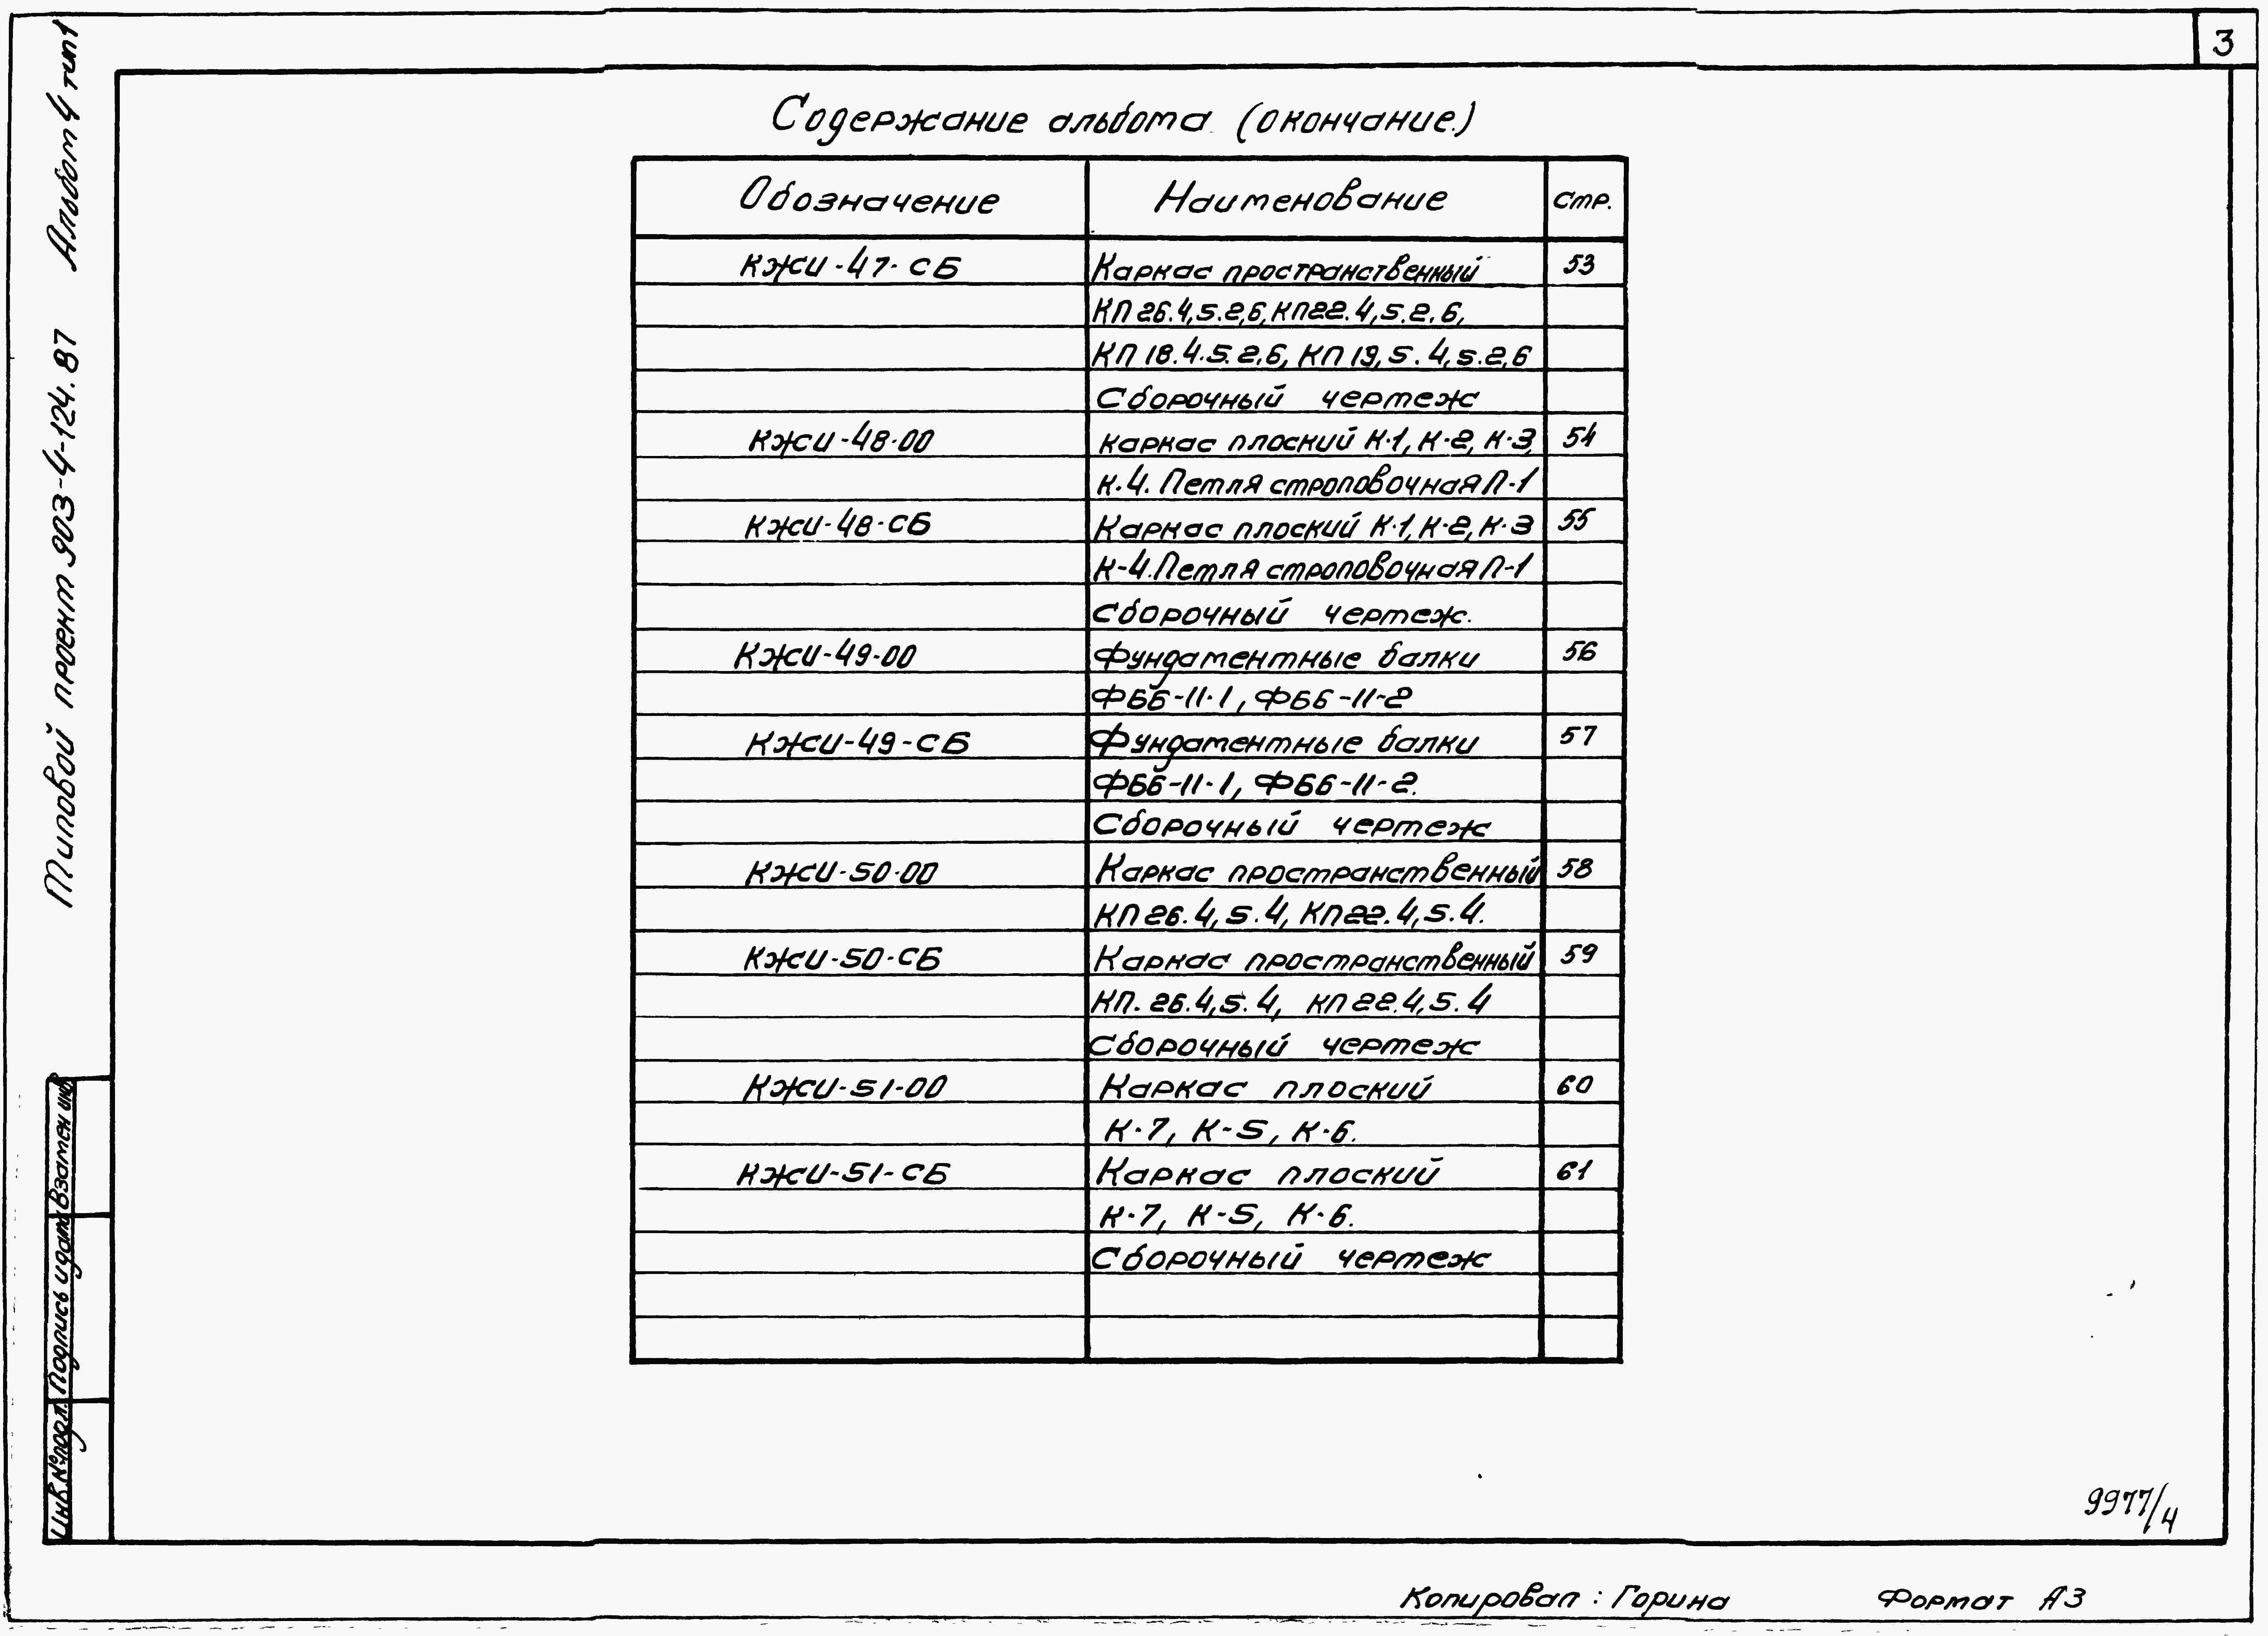 3
Альбом 4 тип 1
Типовой проект 903-4-124.87
Содержание альбома (окончание.)
Обозначение Наименование стр.
КЖИ-47-СБ Каркас пространственный 53
КП 26.4,5.2,6, КП22.4,5.2,6,
КП 18.4.5.2,6, КП 19,5.4,5.2,6
Сборочный чертеж
КЖИ-48-00 каркас плоский К-1, К-2, К-3, 54
К-4. Петля строповочная П-1
КЖИ-48-СБ Каркас плоский К-1, К-2, К-3 55
К-4. Петля строповочная П-1
Сборочный чертеж.
КЖИ-49-00 Фундаментные балки 56
ФББ-11-1, ФББ-11-2
КЖИ-49-СБ Фундаментные балки 57
ФББ-11-1, ФББ-11-2.
Сборочный чертеж
КЖИ-50-00 Каркас пространственный 58
КП 26.4,5.4, КП22.4,5.4.
КЖИ-50-СБ Каркас пространственный 59
КП. 26.4,5.4, КП 22.4,5.4
Сборочный чертеж
КЖИ-51-00 Каркас плоский 60
К-7, К-5, К-6.
КЖИ-51-СБ Каркас плоский 61
К-7, К-5, К-6.
Сборочный чертеж
Взамен инв
Подпись и дата
Инв.№подл.
9977/4
Копировал : Горина Формат А3